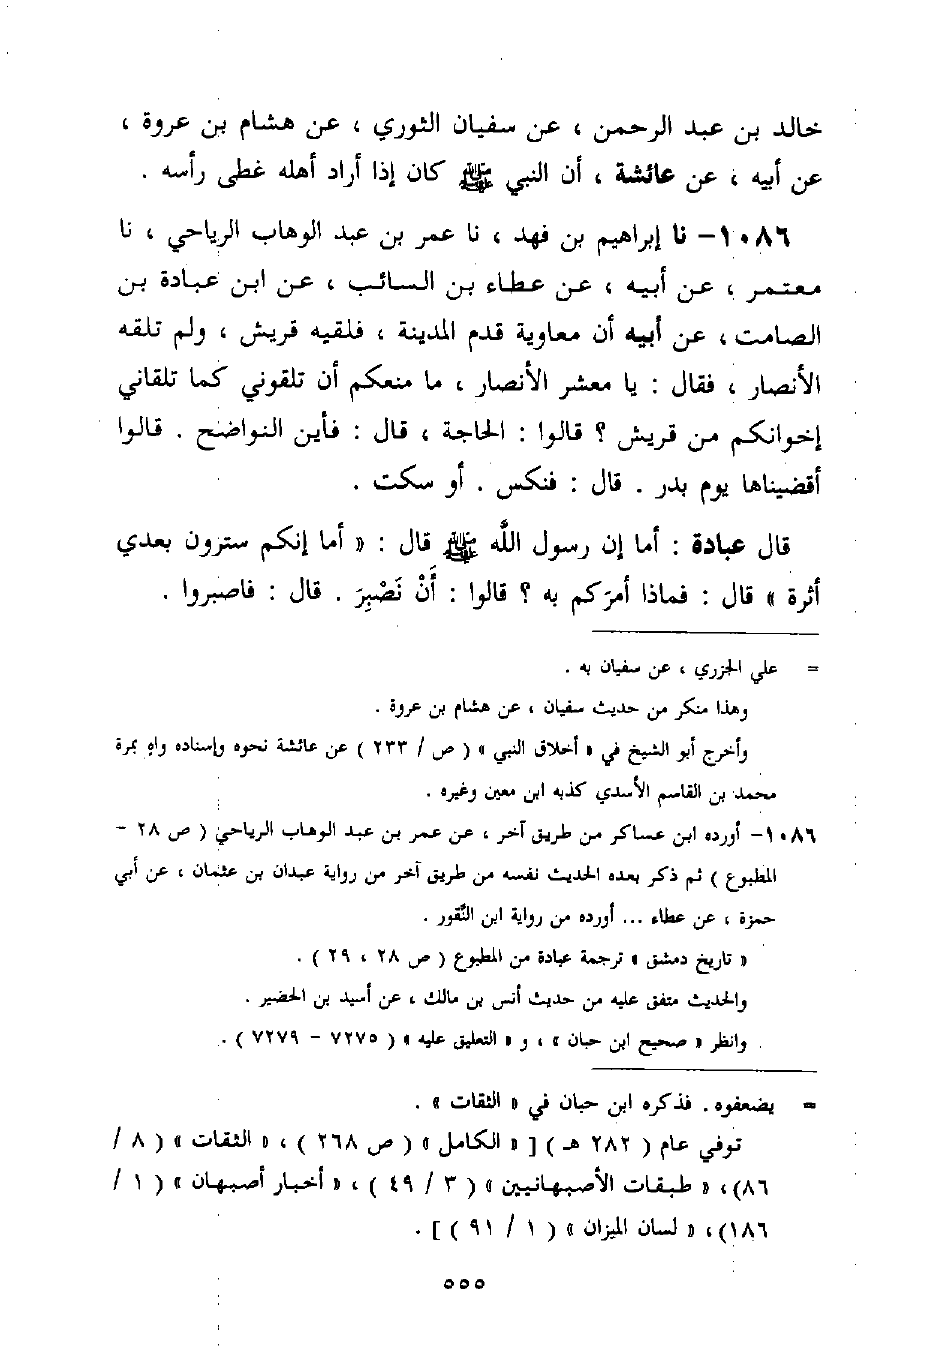 خالد بن عبد الرحمن ، عن سفيان الثوري ، عن هشام بن عروة ،
عن أبيه ، عن عائشة ، أن النبي ﷺ كان إذا أراد أهله غطى رأسه .
١٠٨٦- نا إبراهيم بن فهد ، نا عمر بن عبد الوهاب الرياحي ، نا
معتمر ، عن أبيه ، عن عطاء بن السائب ، عن ابن عبادة بن
الصامت ، عن أبيه أن معاوية قدم المدينة ، فلقيه قريش ، ولم تلقه
الأنصار ، فقال : يا معشر الأنصار ، ما منعكم أن تلقوني كما تلقاني
إخوانكم من قريش ؟ قالوا : الحاجة ، قال : فأين النواضح . قالوا
أقضيناها يوم بدر . قال : فنكس . أو سكت .
قال عبادة : أما إن رسول الله ﷺ قال : « أما إنكم سترون بعدي
أثرة » قال : فماذا أمرَكم به ؟ قالوا : أَنْ نَصْبِرَ . قال : فاصبروا .
= علي الجزري ، عن سفيان به .
وهذا منكر من حديث سفيان ، عن هشام بن عروة .
وأخرج أبو الشيخ في « أخلاق النبي » ( ص / ٢٣٣ ) عن عائشة نحوه وإسناده واهٍ بمرة
محمد بن القاسم الأسدي كذبه ابن معين وغيره .
١٠٨٦- أورده ابن عساكر من طريق آخر ، عن عمر بن عبد الوهاب الرياحي ( ص ٢٨ -
المطبوع ) ثم ذكر بعده الحديث نفسه من طريق آخر من رواية عبدان بن عثمان ، عن أبي
حمزة ، عن عطاء ... أورده من رواية ابن النَّقور .
« تاريخ دمشق » ترجمة عبادة من المطبوع ( ص ٢٨ ، ٢٩ ) .
والحديث متفق عليه من حديث أنس بن مالك ، عن أسيد بن الحضير .
وانظر « صحيح ابن حبان » ، و « التعليق عليه » ( ٧٢٧٥ - ٧٢٧٩ ) .
= يضعفوه . فذكره ابن حبان في « الثقات » .
توفي عام ( ٢٨٢ هـ ) [ « الكامل » ( ص ٢٦٨ ) ، « الثقات » ( ٨ /
٨٦) ، « طبقات الأصبهانيين » ( ٣ / ٤٩ ) ، « أخبار أصبهان » ( ١ /
١٨٦) ، « لسان الميزان » ( ١ / ٩١ ) ] .
٥٥٥